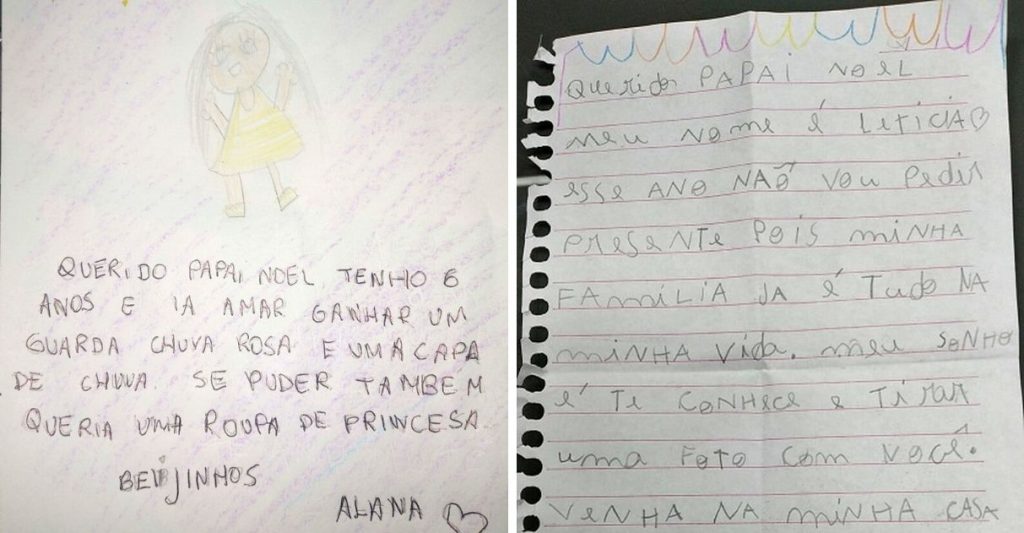 QUERIDO PAPAI NOEL TENHO 6
ANOS E IA AMAR GANHAR UM
GUARDA CHUVA ROSA E UMA CAPA
DE CHUVA. SE PUDER TAMBÉM
QUERIA UMA ROUPA DE PRINCESA
BEIJINHOS
ALANA
Querido PAPAi NOEL
meu Nome é LETICIA
esse ANO NAÕ VOU Pedir
PresENTE POIS miNHA
FAmiLIA JA é Tudo NA
miNHA Vida. meu SONHO
é Te CONHece e Tirar
uma FOTO Com Você.
VENHA NA miNHA CASA